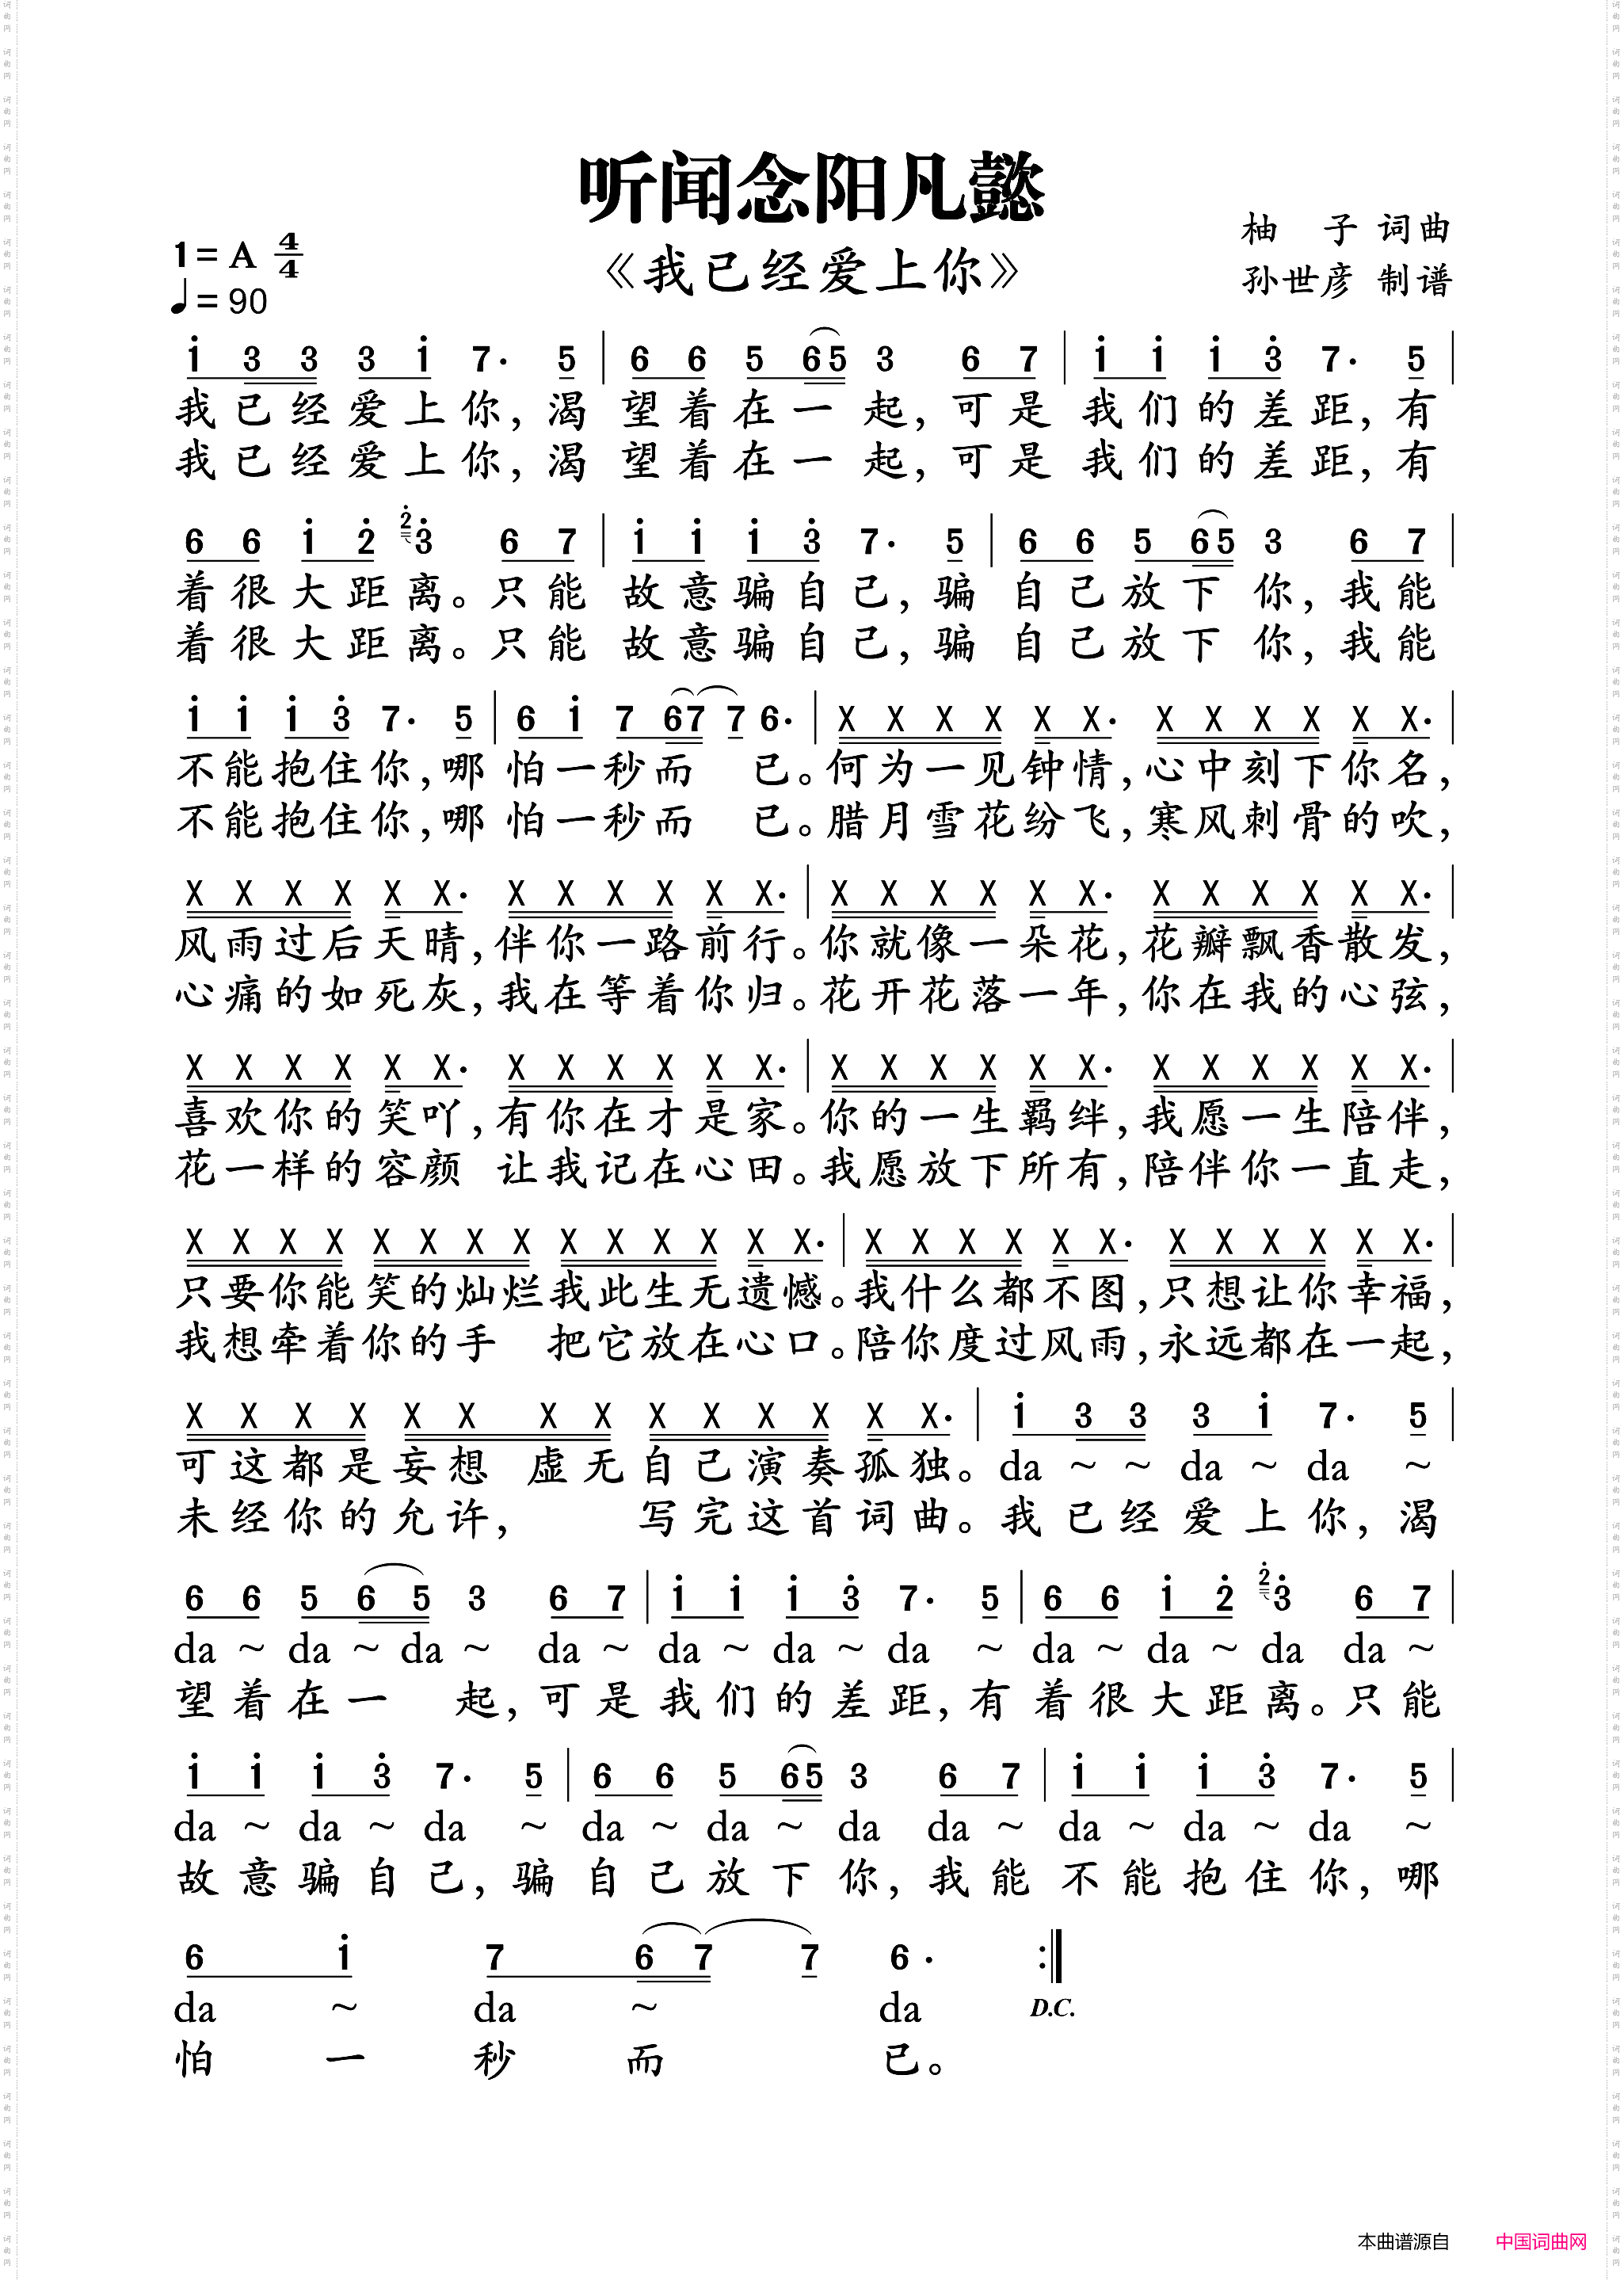 听闻念阳凡懿
《我已经爱上你》
柚 子 词曲
孙世彦 制谱
1= A 4/4
♩= 90
i 3 3 3 i 7· 5 | 6 6 5 65 3 6 7 | i i i 3̇ 7· 5 |
我已经爱上你,渴 望着在一 起,可是 我们的差距,有
我已经爱上你,渴 望着在一 起,可是 我们的差距,有
6 6 i 2̇ 2̇3̇ 6 7 | i i i 3̇ 7· 5 | 6 6 5 65 3 6 7 |
着很大距离。只能 故意骗自己,骗 自己放下 你,我能
着很大距离。只能 故意骗自己,骗 自己放下 你,我能
i i i 3̇ 7· 5 | 6 i 7 67 7 6· | X X X X X X· X X X X X X· |
不能抱住你,哪 怕一秒而 已。何为一见钟情,心中刻下你名,
不能抱住你,哪 怕一秒而 已。腊月雪花纷飞,寒风刺骨的吹,
X X X X X X· X X X X X X· | X X X X X X· X X X X X X· |
风雨过后天晴,伴你一路前行。你就像一朵花,花瓣飘香散发,
心痛的如死灰,我在等着你归。花开花落一年,你在我的心弦,
X X X X X X· X X X X X X· | X X X X X X· X X X X X X· |
喜欢你的笑吖,有你在才是家。你的一生羁绊,我愿一生陪伴,
花一样的容颜 让我记在心田。我愿放下所有,陪伴你一直走,
X X X X X X X X X X X X X X· | X X X X X X· X X X X X X· |
只要你能笑的灿烂我此生无遗憾。我什么都不图,只想让你幸福,
我想牵着你的手 把它放在心口。陪你度过风雨,永远都在一起,
X X X X X X X X X X X X X X· | i 3 3 3 i 7· 5 |
可这都是妄想 虚无自己演奏孤独。da ~ ~ da ~ da ~
未经你的允许, 写完这首词曲。我已经爱上你,渴
6 6 5 6 5 3 6 7 | i i i 3̇ 7· 5 | 6 6 i 2̇ 2̇3̇ 6 7 |
da ~ da ~ da ~ da ~ da ~ da ~ da ~ da ~ da ~ da da ~
望着在一 起,可是我们的差距,有着很大距离。只能
i i i 3̇ 7· 5 | 6 6 5 65 3 6 7 | i i i 3̇ 7· 5 |
da ~ da ~ da ~ da ~ da ~ da da ~ da ~ da ~ da ~
故意骗自己,骗 自己放下 你,我能 不能抱住你,哪
6 i 7 6 7 7 6· :‖
da ~ da ~ da D.C.
怕 一 秒 而 已。
本曲谱源自 中国词曲网